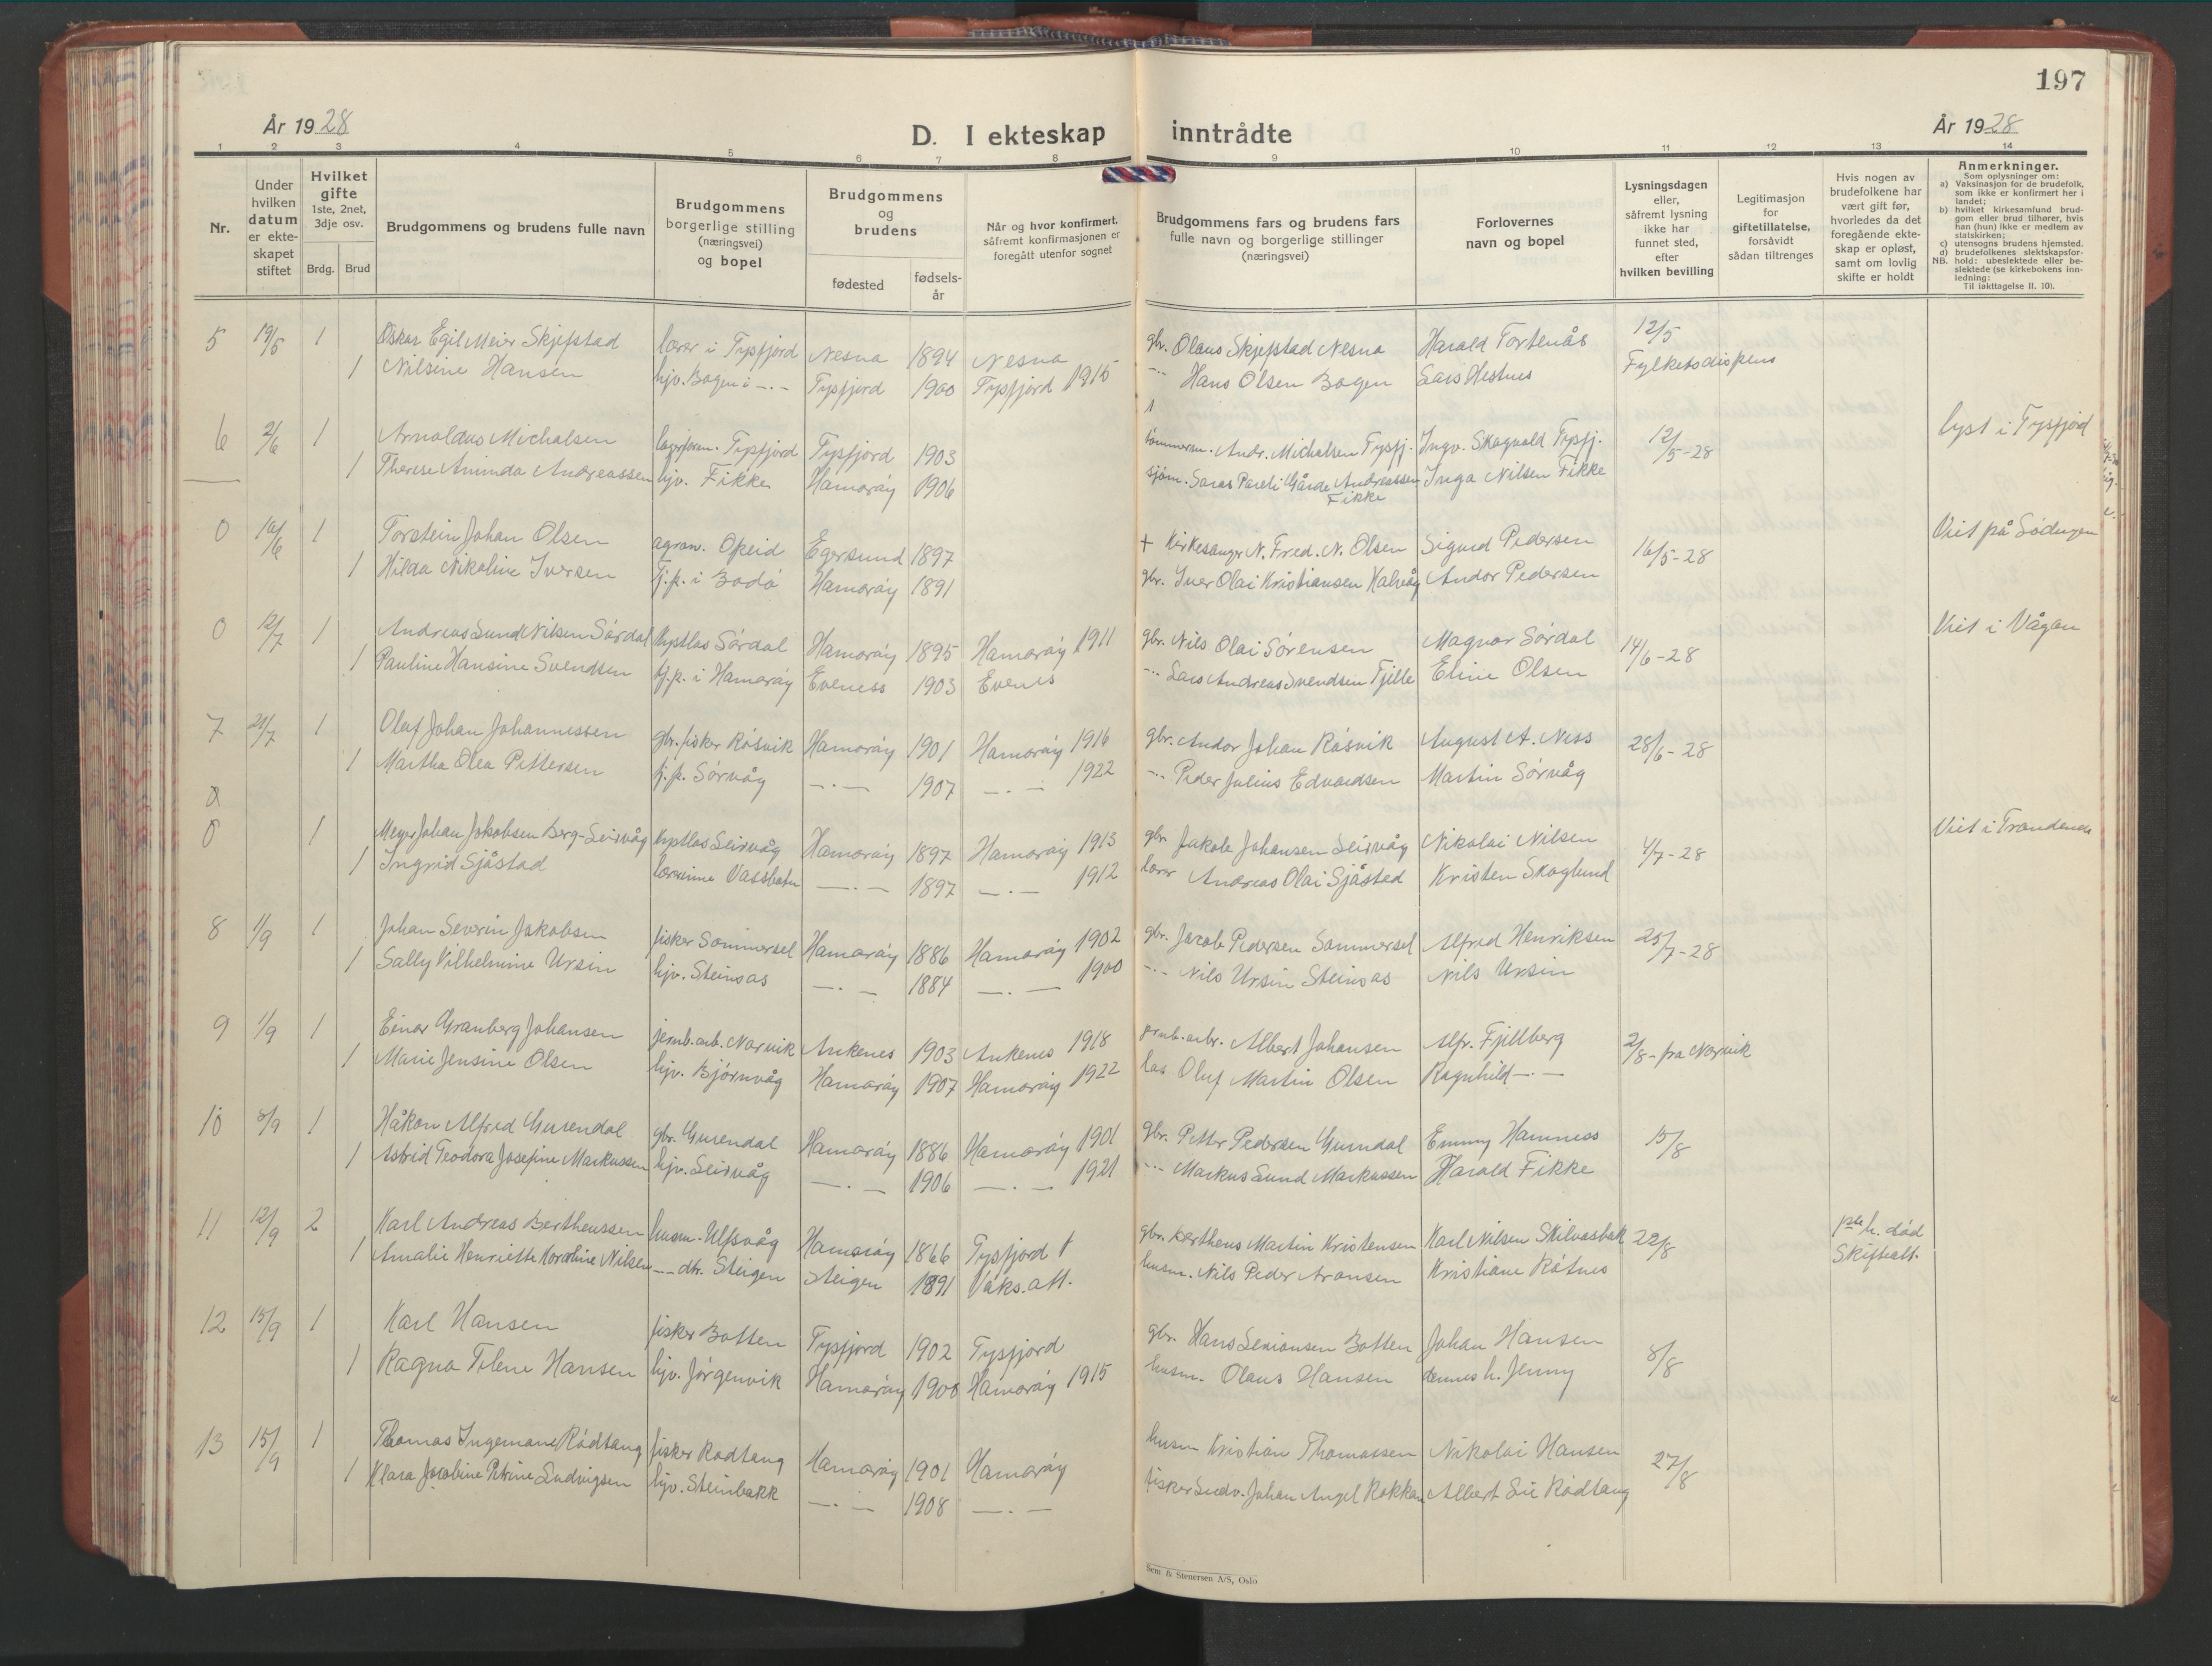 197
År 1928
D. I ekteskap inntrådte
År 1928
1 2 3 4 5 6 7 8 9 10 11 12 13 14
Nr.
Under hvilken datum er ekteskapet stiftet
Hvilket gifte
1ste, 2net, 3dje osv.
Brdg. Brud
Brudgommens og brudens fulle navn
Brudgommens borgerlige stilling (næringsvei) og bopel
Brudgommens og brudens
fødested
fødselsår
Når og hvor konfirmert, såfremt konfirmasjonen er foregått utenfor sognet
Brudgommens fars og brudens fars fulle navn og borgerlige stillinger (næringsvei)
Forlovernes navn og bopel
Lysningsdagen eller, såfremt lysning ikke har funnet sted, efter hvilken bevilling
Legitimasjon for giftetillatelse, forsåvidt sådan tiltrenges
Hvis nogen av brudefolkene har vært gift før, hvorledes da det foregående ekteskap er opløst, samt om lovlig skifte er holdt
Anmerkninger.
Som oplysninger om:
a) Vaksinasjon for de brudefolk, som ikke er konfirmert her i landet;
b) hvilket kirkesamfund brudgom eller brud tilhører, hvis han (hun) ikke er medlem av statskirken;
c) utensogns brudens hjemsted.
d) brudefolkenes slektskapsforhold: ubeslektede eller beslektede (se kirkebokens innledning:
NB.
Til iakttagelse II. 10).
5 19/5 1 Oskar Egil Meier Skjefstad lærer i Tysfjord Nesna 1894 Nesna gbr. Olaus Skjefstad Nesna Harald Tortenås 12/5
1 Nilsine Hansen hjv. Bogen i -.- Tysfjord 1900 Tysfjord 1915 -"- Hans Olsen Bogen Lars Hestnes Fylketsdispens
6 2/6 1 Arnoldus Micholsen Tysfjord Tysfjord 1903 Andr. Micholsen Tysfj. Ingv. Skogvold Tysfj. 12/5-28 lyst i Tysfjord
1 Therese Aminda Andreassen hjv. Fikke Hamarøy 1906 sjøm. Andreassen Fikke Inga Nilsen Fikke
0 10/6 1 Torstein Johan Olsen agron. Opeid Egersund 1897 + Kirkesanger N. Fred. N. Olsen Sigurd Pedersen 16/5-28 Viet på
1 Hilda Nikoline Iversen tj.p. i Bodø Hamarøy 1891 gbr. Iver Olai Kristiansen Kalvåg Andor Pedersen
0 12/7 1 Andreas Sund Nilsen Sørdal Kystlos Sørdal Hamarøy 1895 Hamarøy 1911 gbr. Nils Olai Sørensen Magnar Sørdal 14/6-28 Viet i Vågan
1 Pauline Hansine Svendsen tj.p. i Hamarøy Eveness 1903 Evenes -"- Lars Andreas Svendsen Tjille Eline Olsen
7 21/7 1 Olaf Johan Johannessen gbr. fisker Røsvik Hamarøy 1901 Hamarøy 1916 gbr. Andor Johan Røsvik August A. Ness 28/6-28
1 Martha Olea Pettersen tj.p. Sørvåg -.- 1907 -.- 1922 -"- Peder Julius Edvardsen Martin Sørvåg
0 1 Meyer Johan Jakobsen Berg-Leirvåg Kystlos Leirvåg Hamarøy 1897 Hamarøy 1913 gbr Jakob Johansen Leirvåg Nikolai Nilsen 4/7-28 Viet i Trondenes
1 Ingrid Sjåstad lærerinne Vassbotn -.- 1897 -.- 1912 lærer Andreas Olai Sjåstad Kristen Skoglund
8 1/9 1 Johan Severin Jakobsen fisker Sommersel Hamarøy 1886 Hamarøy 1902 gbr. Jacob Pedersen Sommersel Alfred Henriksen 25/7-28
1 Sally Vilhelmine Ursin hjv. Steinsås -.- 1884 -.- 1900 -"- Nils Ursin Steinsås Nils Ursin
9 1/9 1 Einar Granberg Johansen jernb.arb. Narvik Ankenes 1903 Ankenes 1918 jernb.arb. Albert Johansen Alfr. Fjellberg 2/8- fra Narvik
1 Marie Jensine Olsen hjv. Bjørnvåg Hamarøy 1907 Hamarøy 1922 los Oluf Martin Olsen Ragnhild -.-
10 8/9 1 Håkon Alfred Gurendal gbr. Gurendal Hamarøy 1886 Hamarøy 1901 gbr. Petter Pedersen Gurendal Emmy Hamness 15/8
1 Astrid Teodora Josefine Markussen hjv. Leirvåg -.- 1906 -.- 1921 -"- Markus Sund Markussen Harald Fikke
11 12/9 2 Karl Andreas Bertheussen husm. Ulfsvåg Hamarøy 1866 Tysfjord gbr. Bertheus Martin Kristensen Karl Nilsen Skilvasbak 22/8 h. død
1 Amalie Henriette Karoline Nilsen -"- dtr. Steigen Steigen 1891 Vaks.att. husm. Nils Peder Aronsen Kristiane Røtnes Skifteatt.
12 15/9 1 Karl Hansen fisker Botten Tysfjord 1902 Tysfjord gbr. Hans Simonsen Botten Johan Hansen 8/8
1 Ragna Tilene Hansen hjv. Jørgenvik Hamarøy 1900 Hamarøy 1915 husm. Olaus Hansen dennes h. Jenny
13 15/9 1 Thomas Ingemann Rødtang fisker Rødtang Hamarøy 1901 Hamarøy husm Kristian Thomassen Nikolai Hansen 27/8
1 Klara Jacobine Petrine Ludvigsen hjv. Steinbakk -.- 1908 -.- fisker Ludv. Johan Angel Kokkan Albert Rødtang
Sem & Stenersen A/S, Oslo